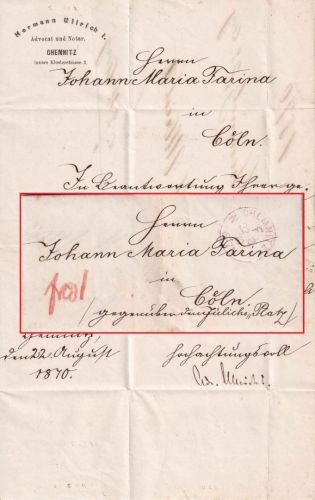 Hermann Ullrich I.
Advocat und Notar.
CHEMNITZ
innere Klosterstrasse 2.
Herrn
Johann Maria Farina
in
Cöln.
In Beantwortung Ihrer ge:
Herrn
Johann Maria Farina
in
Cöln.
/gegenüber dem Jülichs Platz/
Chemnitz,
den 22. August
1870.
Hochachtungsvoll